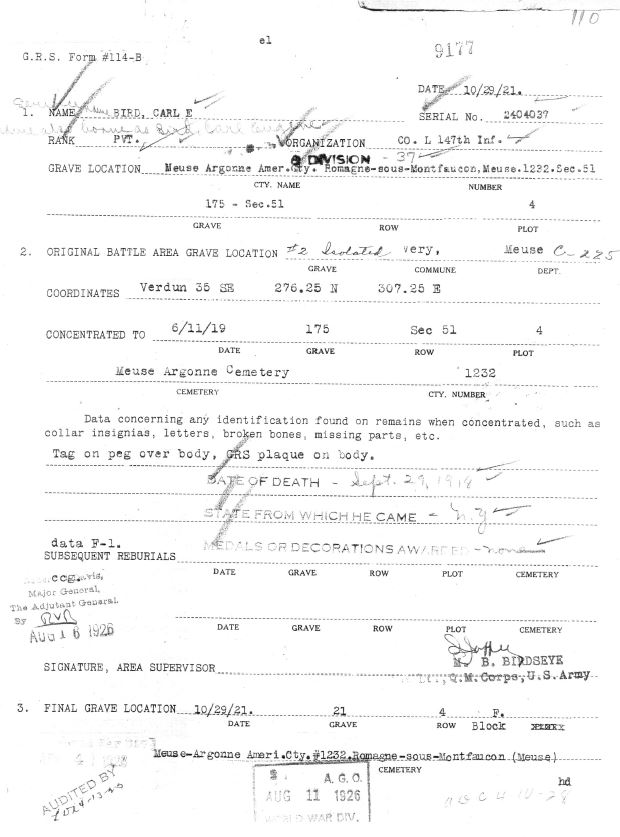 110
el
9177
G.R.S. Form #114-B
DATE 10/29/21.
1. NAME BIRD, CARL E SERIAL No. 2404037
also borne as Bird, Carl Eugene
RANK PVT. ORGANIZATION CO. L 147th Inf.
DIVISION - 37
GRAVE LOCATION Meuse Argonne Amer. Cty. Romagne-sous-Montfaucon, Meuse.1232.Sec.51
CTY. NAME NUMBER
175 - Sec.51 4
GRAVE ROW PLOT
2. ORIGINAL BATTLE AREA GRAVE LOCATION #2 Isolated very, Meuse C-225
GRAVE COMMUNE DEPT.
COORDINATES Verdun 35 SE 276.25 N 307.25 E
CONCENTRATED TO 6/11/19 175 Sec 51 4
DATE GRAVE ROW PLOT
Meuse Argonne Cemetery 1232
CEMETERY CTY. NUMBER
Data concerning any identification found on remains when concentrated, such as
collar insignias, letters, broken bones, missing parts, etc.
Tag on peg over body, GRS plaque on body.
DATE OF DEATH - Sept. 29, 1918
STATE FROM WHICH HE CAME - N.Y.
data F-1. MEDALS OR DECORATIONS AWARDED - none
SUBSEQUENT REBURIALS
DATE GRAVE ROW PLOT CEMETERY
ccg.
Major General,
The Adjutant General.
By RVR
AUG 16 1926
DATE GRAVE ROW PLOT CEMETERY
M. B. BIRDSEYE
SIGNATURE, AREA SUPERVISOR Q.M.Corps, U.S.Army
3. FINAL GRAVE LOCATION 10/29/21. 21 4 F.
DATE GRAVE ROW Block
Meuse-Argonne Ameri.Cty.#1232.Romagne-sous-Montfaucon (Meuse)
CEMETERY
hd
AUDITED BY
A.G.O.
AUG 11 1926
WORLD WAR DIV.